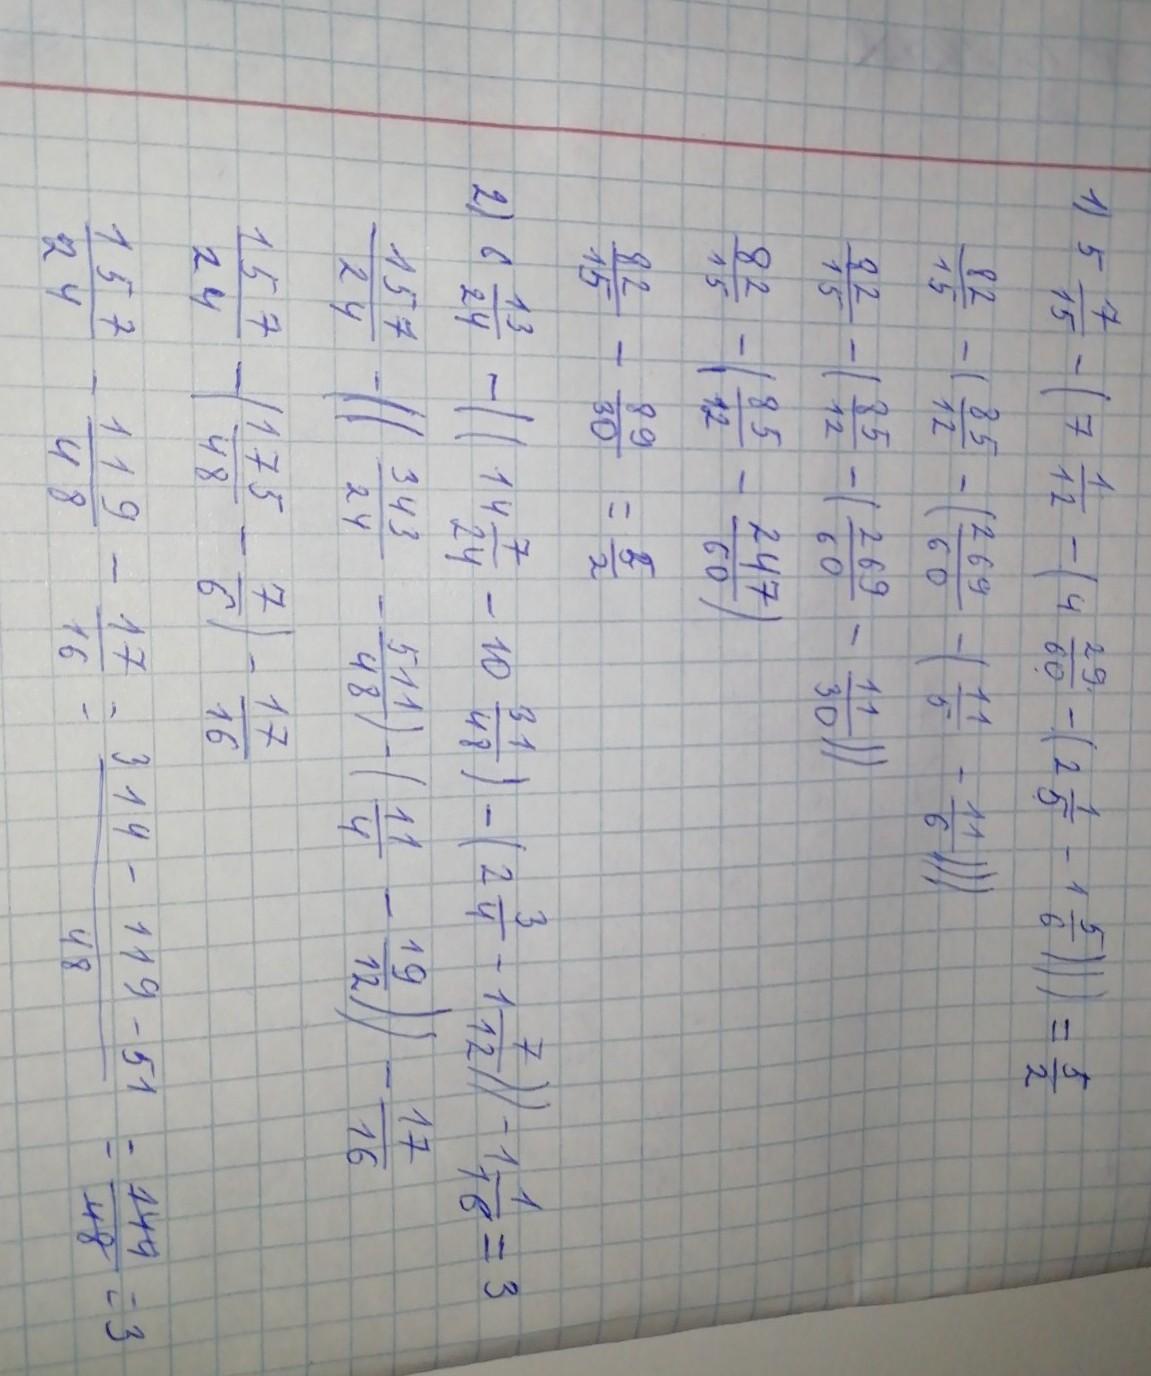 1) 5 7/15 - (7 1/12 - (4 29/60 - (2 1/5 - 1 5/6))) = 5/2
82/15 - (85/12 - (269/60 - (11/5 - 11/6))))
82/15 - (85/12 - (269/60 - 11/30)))
82/15 - (85/12 - 247/60)
82/15 - 89/30 = 5/2
2) 6 13/24 - ((14 7/24 - 10 31/48) - (2 3/4 - 1 7/12)) - 1 1/16 = 3
157/24 - ((343/24 - 511/48) - (11/4 - 19/12)) - 17/16
157/24 - (175/48 - 7/6) - 17/16
157/24 - 119/48 - 17/16 = 314 - 119 - 51/48 = 144/48 = 3